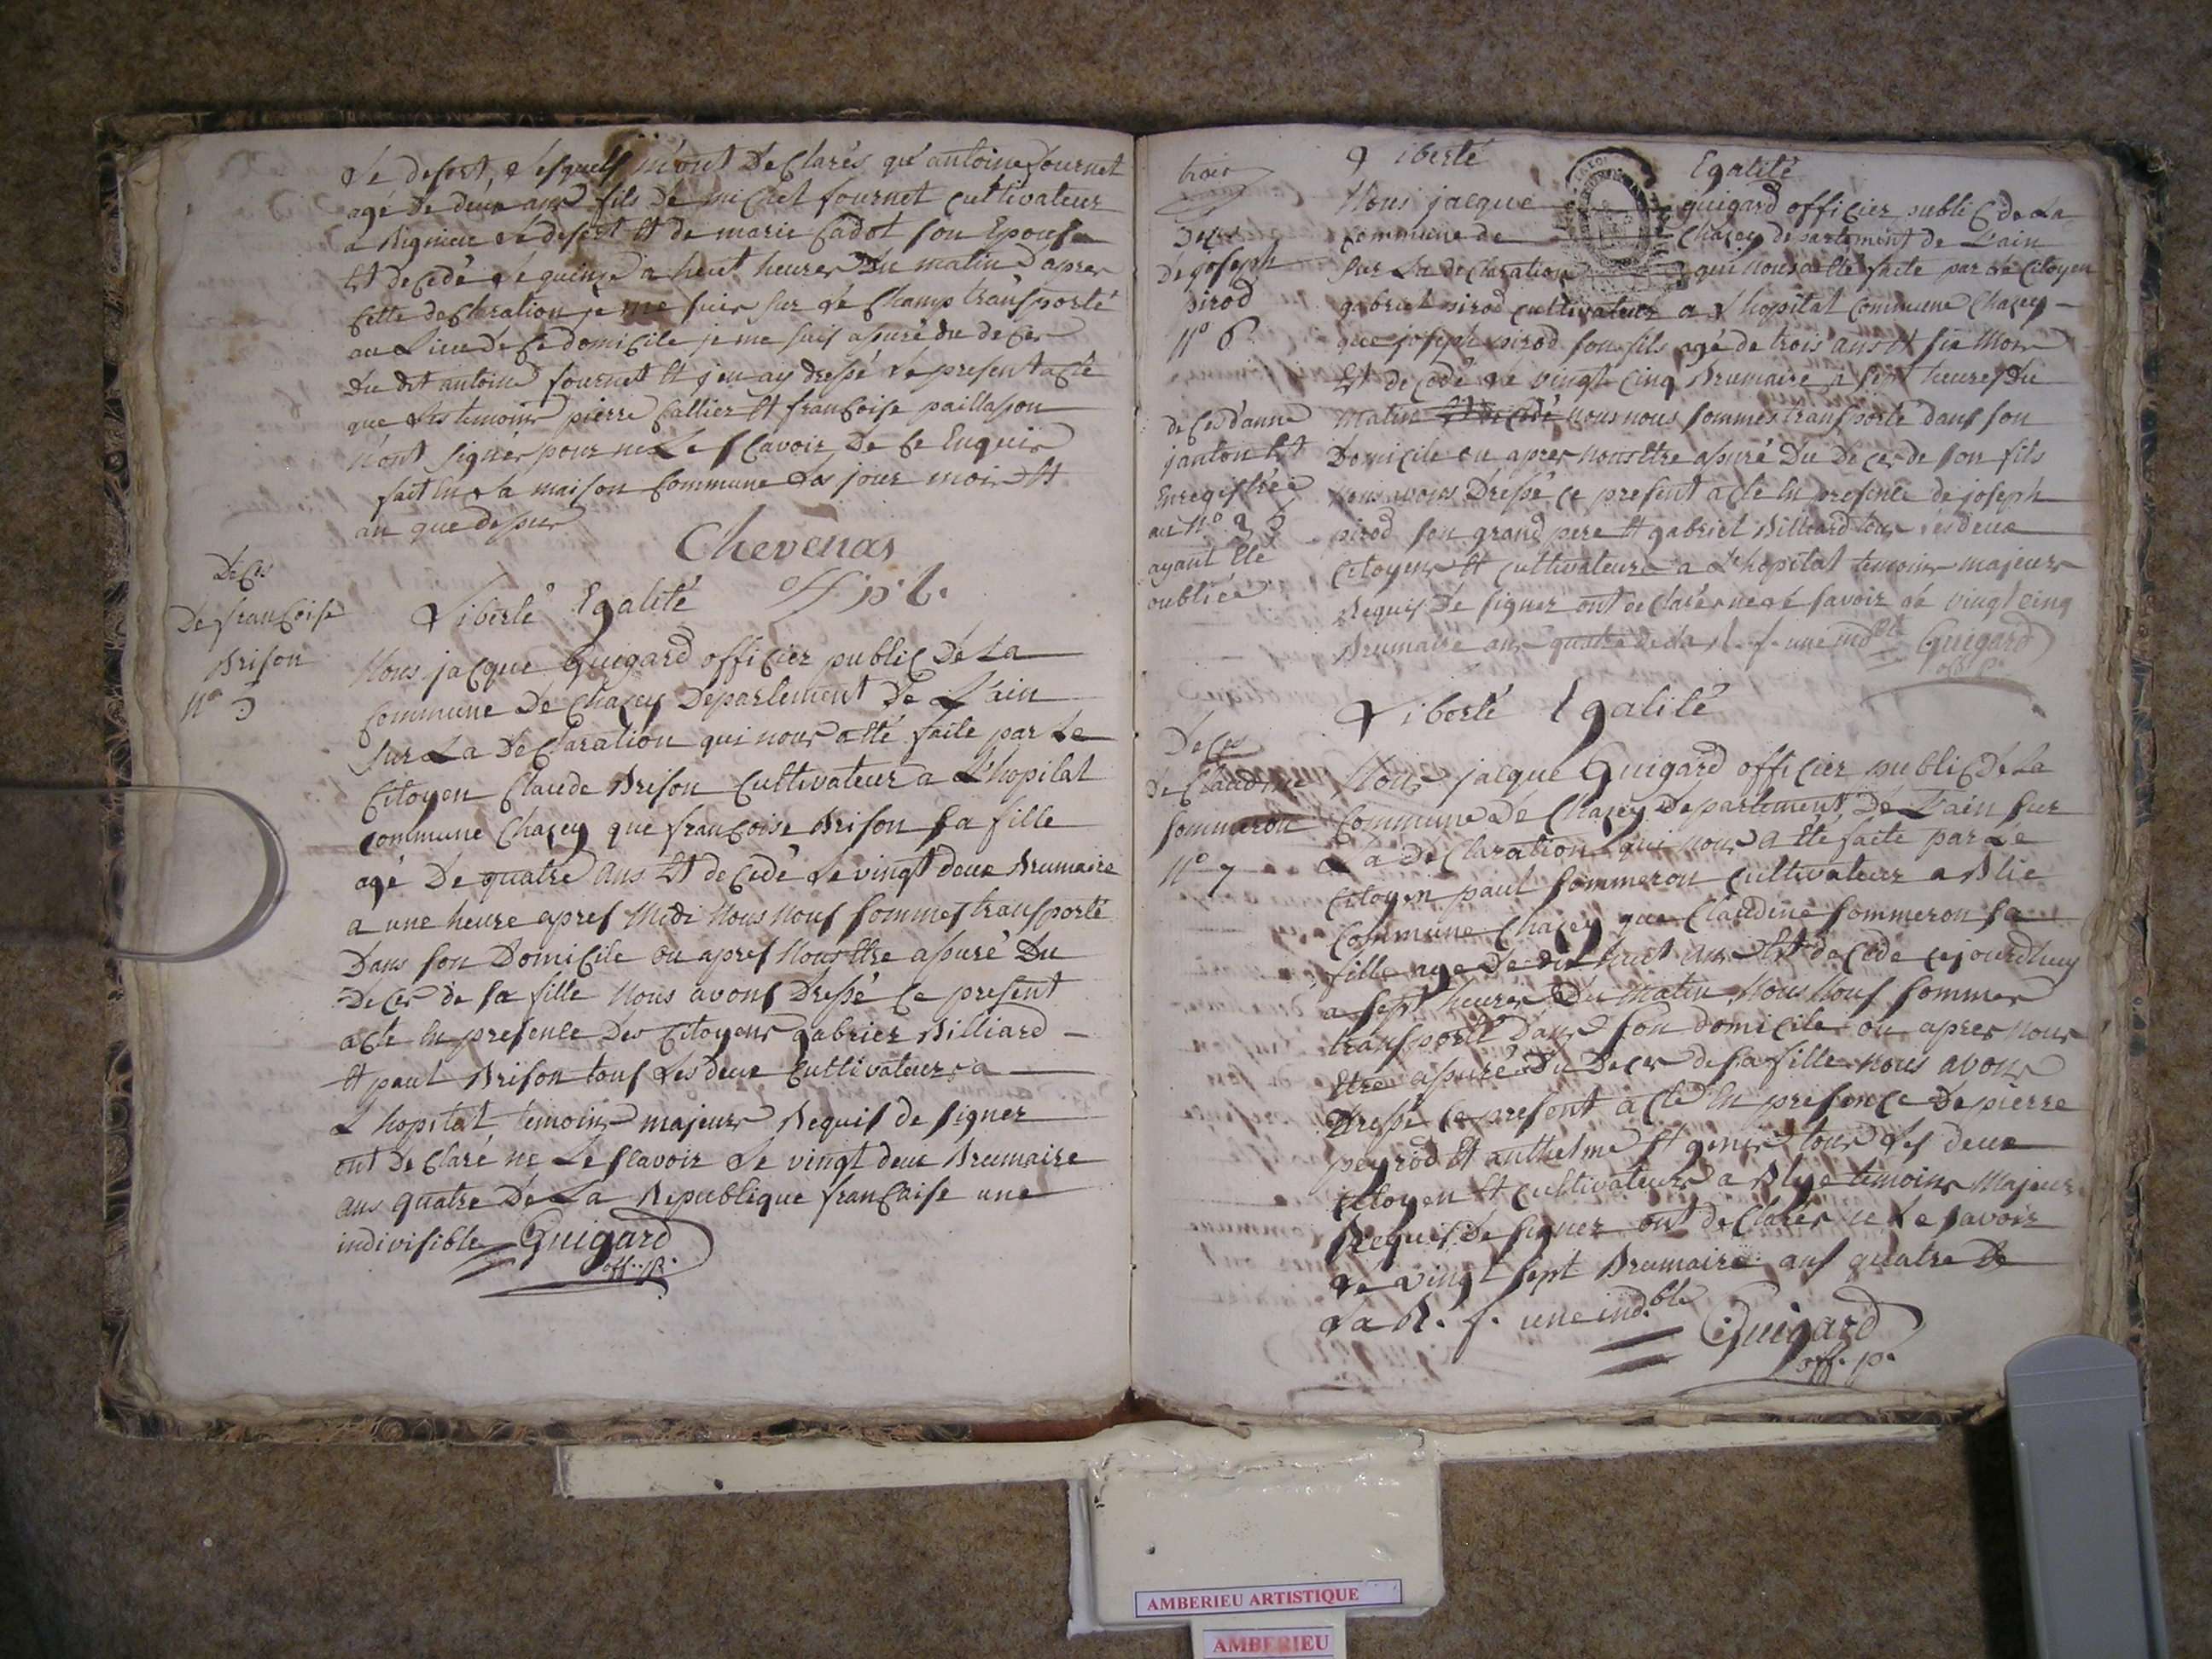 Le desert, Lesquels m'ont declarés qu'antoine fournet
agé de deux ans fils de michel fournet cultivateur
a Rignieu le desert Et de marie Cadot son Epouse
Et decedé Le quinze a heut heures du matin d'apres
Cette declaration je me suis sur Le Champ transporté
au Lieu de Ce domicile je me suis assuré du deces
du dit antoine fournet Et j'en ay dressé Le present acte
que Les temoins pierre Callier Et francoise paillasson
n'ont signés pour ne Le scavoir De Ce Enquis
fait En La maison Commune Les jour mois Et
an que dessus
Chevenas
off. p. b.
Deces
De francoise
Brison
n° 5
Liberté Egalité
Nous jacque Guigard officier public De La
Commune De Chazey Departement De L'ain
sur La Declaration qui nous a été faite par Le
Citoyen Claude Brison Cultivateur a L'hopital
commune Chazey que francoise Brison sa fille
agé De quatre ans Et decedé Le vingt deux Brumaire
a une heure apres Midi Nous nous sommes transporté
Dans son Domicile ou apres Nous Etre assuré Du
Deces de sa fille Nous avons Dressé Ce present
acte En presence Des Citoyens gabriez Billiard
Et paul Brison tous Les deux Cultivateurs a
L'hopital temoins majeurs Requis de signer
ont declaré ne Le scavoir Le vingt deux Brumaire
ans quatre De La Republique francaise une
indivisible Guigard
off. p.
trois
Deces
de joseph
pirod
N° 6
de Ced d'anne
janton Est
Enregistrée
au N° 23
ayant Eté
oubliée
Liberté Egalité
Nous jacque guigard officier public de La
Commune de Chazey departement de L'ain
sur La declaration qui nous a eté faite par Le Citoyen
gabriel pirod cultivateur a L'hopital Commune Chazey
que joseph pirod son fils agé de trois ans Et six Mois
Et decedé Le vingt Cinq Brumaire a sept heures du
Matin Et decedé nous nous sommes transporté dans son
Domicile ou apres nous Etre assuré Du Deces de son fils
nous avons Dressé ce present acte En presence de joseph
pirod son grand pere Et gabriel Billiard tous Les deux
Citoyens Et cultivateurs a L'hopital temoins majeurs
Requis De signer ont declarés ne Le savoir Le vingt cinq
Brumaire ans quatre de La R. f. une ind.ble Guigard
off. p.
Deces
de Claudine
Sommeron
N° 7
Liberté Egalité
Nous jacque Guigard officier public De La
Commune De Chazey Departement De L'ain sur
La declaration qui nous a Eté faite par Le
Citoyen paul Sommeron cultivateur a Blie
Commune Chazey que Claudine Sommeron sa
fille age de dix huit ans Est decede cejourdhuy
a sept heures Du matin, Nous nous sommes
transporté dans son domicile ou apres nous
Etre assuré Du Deces de sa fille nous avons
Dressé Ce present acte En presence De pierre
peyrod Et anthelme tous Les deux
Citoyen Et cultivateurs a Blye temoins Majeurs
Requis De signer ont declarés ne Le savoir
Le vingt sept Brumaire ans quatre De
La R. f. une ind.ble Guigard
off. p.
AMBERIEU ARTISTIQUE
AMBERIEU